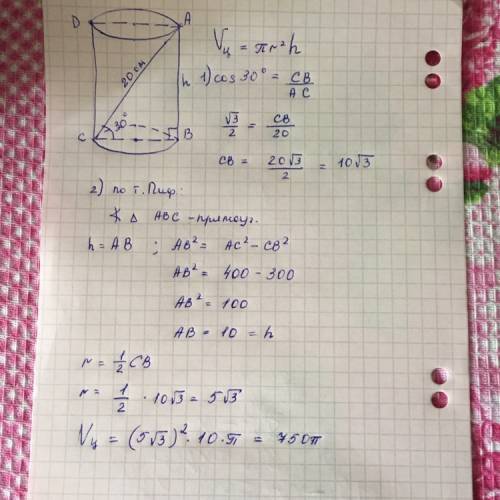 D A
20 см
h
30°
C B
Vц = πr²h
1) cos 30° = CB/AC
√3/2 = CB/20
CB = 20√3/2 = 10√3
2) по т. Пиф:
Δ ABC - прямоуг.
h = AB ; AB² = AC² - CB²
AB² = 400 - 300
AB² = 100
AB = 10 = h
r = 1/2 CB
r = 1/2 · 10√3 = 5√3
Vц = (5√3)² · 10 · π = 750π